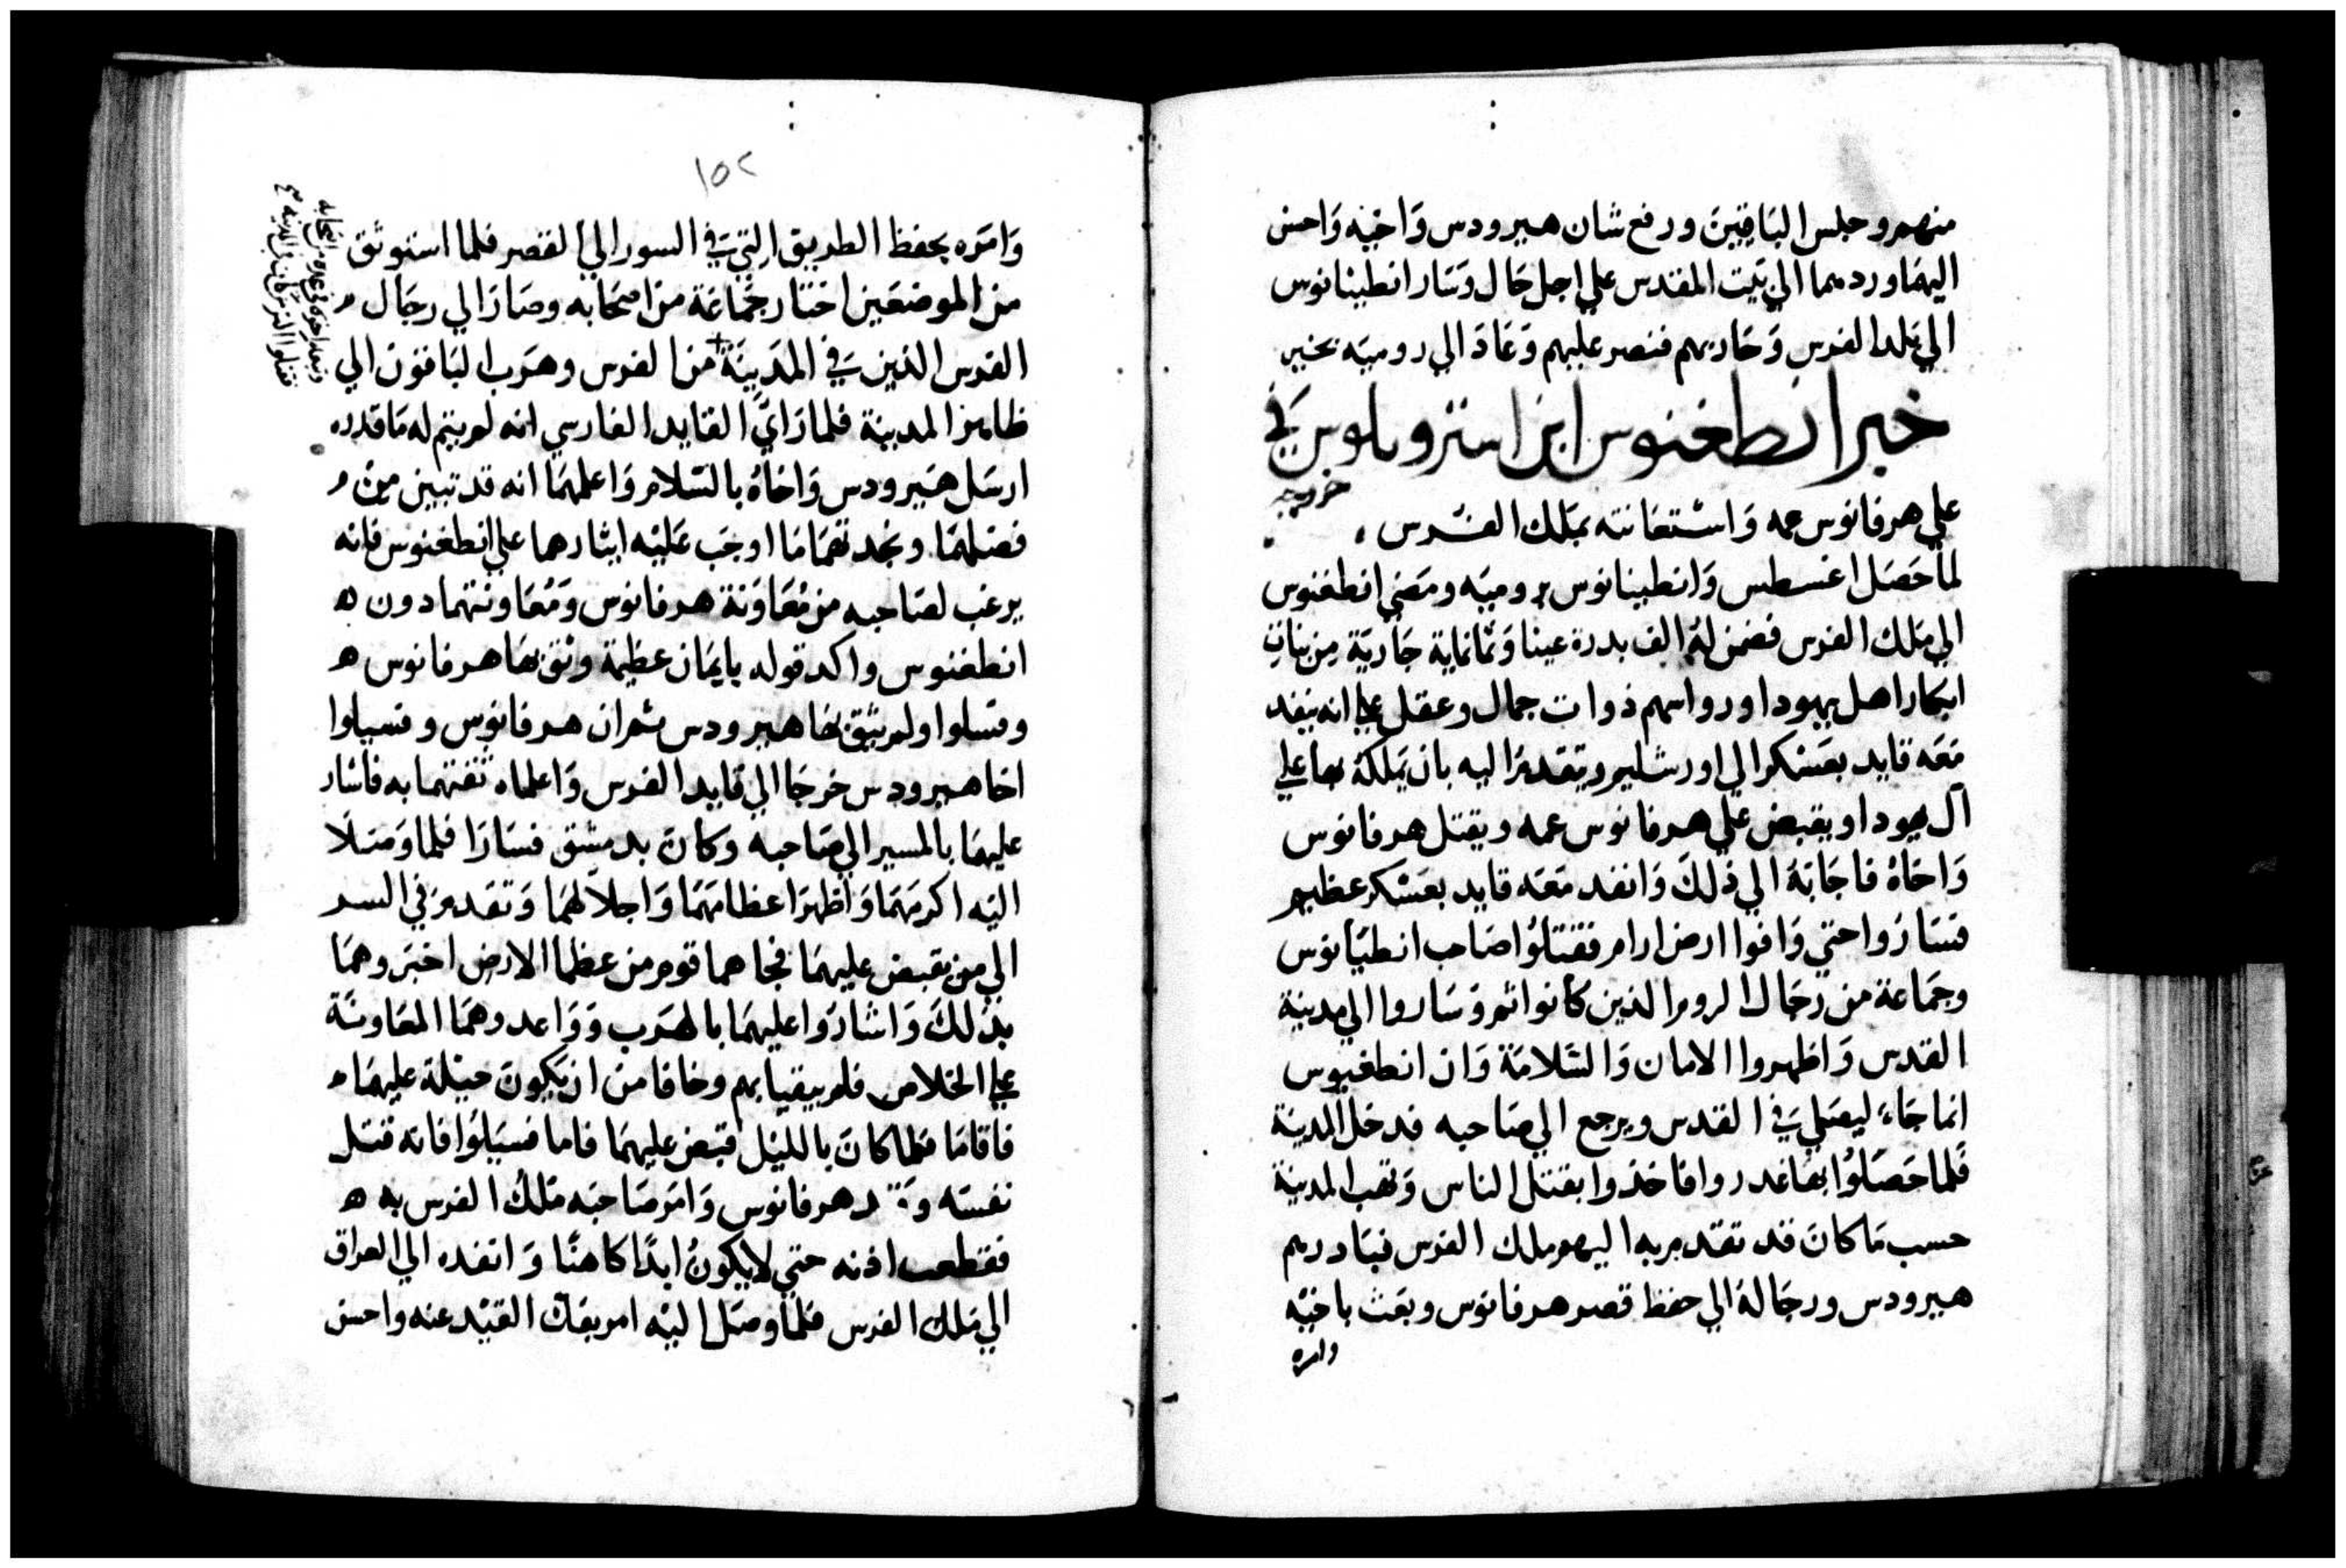 منهم وحبس الباقين ورفع شان هيرودس واخيه واحسن
اليهما وردهما الي بيت المقدس علي اجل حال وسار انطينانوس
الي بلد الفرس وحاربهم فنصر عليهم وعاد الي روميه بخير
خبر انطغنوس ابن استروبلوس في
خروجه
علي هرقانوس عمه واستعانته بملك الفرس
لما حصل اغسطس وانطينانوس بروميه ومضي انطغنوس
الي ملك الفرس فضمن له الف بدرة عينا وثمانماية جارية من بنات
ابكار اهل يهودا ورواسهم ذوات جمال وعقل علي انه ينفد
معه قايد بعسكر الي اورشليم ويتقدم اليه بان يملكه بها علي
آل يهودا ويقبض علي هرقانوس عمه ويقتل هرقانوس
واخاه فاجابه الي ذلك وانفد معه قايد بعسكر عظيم
فساروا حتي وافوا ارض ارام فقتلوا صاحب انطيانوس
وجماعة من رجال الروم الذين كانوا ثم وساروا الي مدينة
القدس واظهروا الامان والسلامة وان انطغنوس
انما جاء ليصلي في القدس ويرجع الي صاحبه فدخل المدينة
فلما حصلوا بها غدروا فاخذوا بقتل الناس ونهب المدينة
حسب ما كان قد تقدم به اليهم ملك الفرس فبادرهم
هيرودس ورجاله الي حفظ قصر هرقانوس وبعث باخيه
وامره
١٥٢
وامره بحفظ الطريق التي في السور الي القصر فلما استوثق
من الموضعين اختار جماعة من اصحابه وصار الي رجال
الفرس الذين في المدينة + من الفرس وهرب الباقون الي
ظاهر المدينة فلما راي القايد الفارسي انه لم يتم له ما قدره
ارسل هيرودس واخاه بالسلام واعلمهما انه قد تبين من
فضلهما ونجدتهما ما اوجب عليه ايثارهما علي انطغنوس فانه
يرغب لصاحبه من معاونة هرقانوس ومعاونتهما دون ه
انطغنوس واكد قوله بايمان عظيمة وثق بها هرقانوس ه
وفسلوا ولم يثق بها هيرودس ثم ان هرقانوس وفسيلوا
اخا هيرودس خرجا الي قايد الفرس واعلماه ثقتهما به فاشار
عليهما بالمسير الي صاحبه وكان بدمشق فسارا فلما وصلا
اليه اكرمهما واظهر اعظامهما واجلالهما وتقدم في السر
الي من يقبض عليهما فجاهما قوم من عظما الارض اخبروهما
بذلك واشاروا عليهما بالهرب وواعدوهما المعاونة
علي الخلاص فلم يثقيا بهم وخافا من ان يكون حيلة عليهما
فاقاما فلما كان بالليل قبض عليهما فاما فسيلوا فانه قتل
نفسه و هرقانوس وامر صاحبه ملك الفرس به ه
فقطعت اذنه حتي لا يكون ابدا كاهنا وانفده الي العراق
الي ملك الفرس فلما وصل اليه امر بفك القيد عنه واحسن